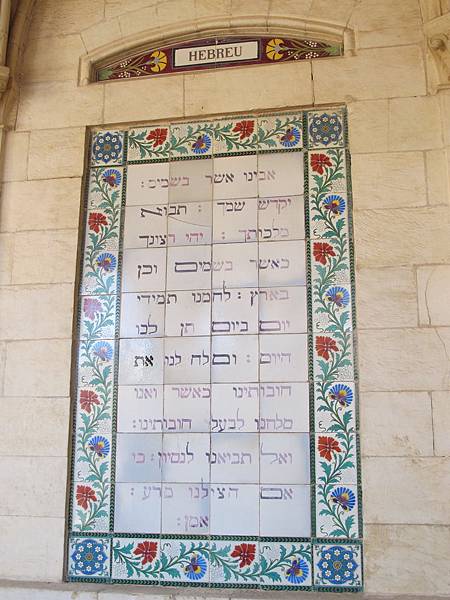 HEBREU
אבינו אשר בשמים :
יקדש שמך : תבוא
מלכותך : יהי רצונך
כאשר בשמים וכן
בארץ : לחמנו תמידי
יום ביום תן לנו
היום : וסלח לנו את
חובותינו כאשר ואנו
סלחנו לבעלי חובותינו :
ואל תביאנו לנסיון : כי
אם הצילנו מרע :
אמן :